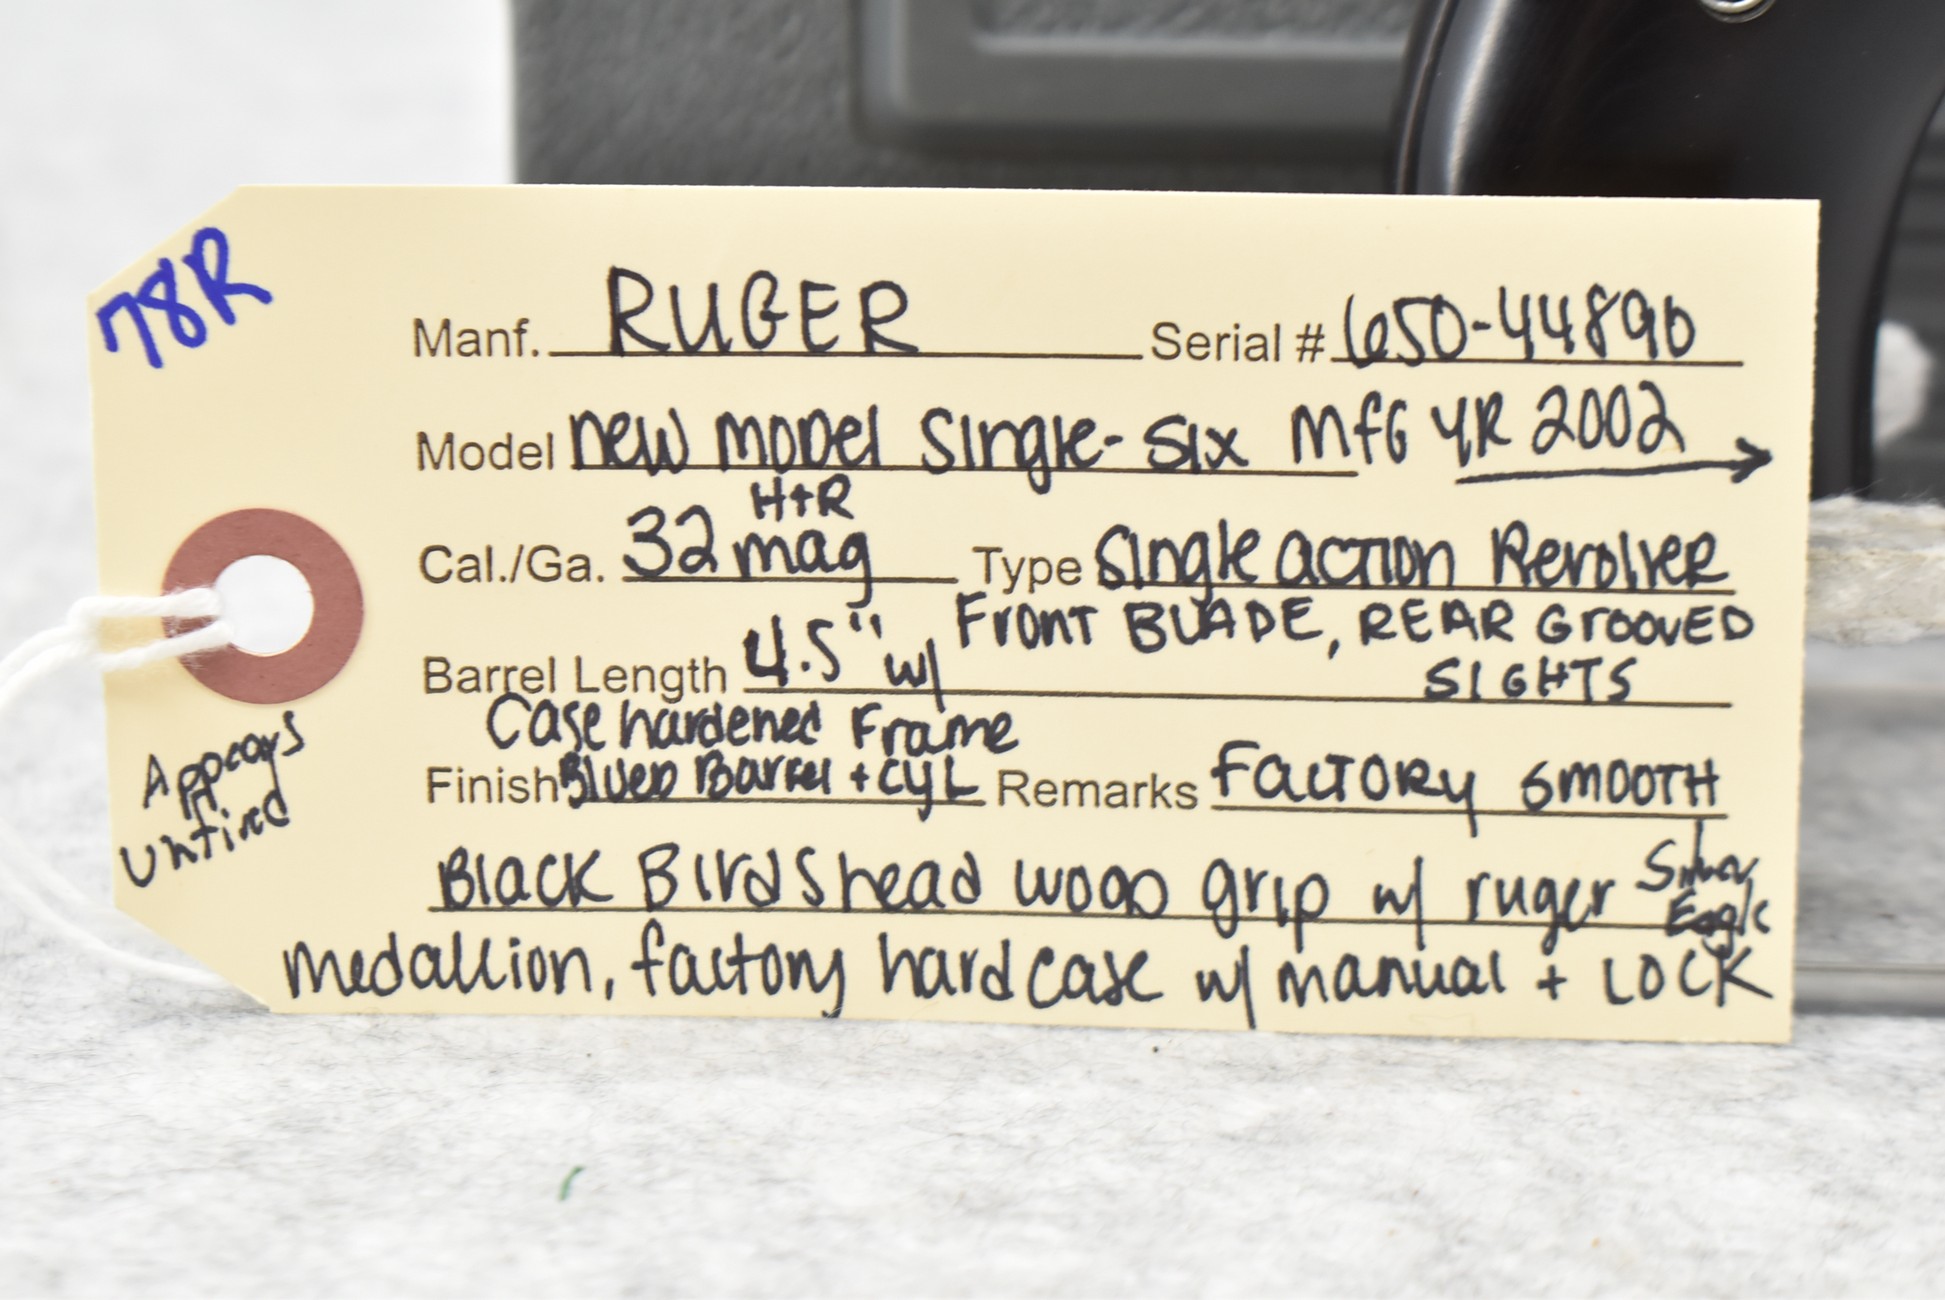 78R
Manf. RUGER Serial # 650-44890
Model New Model Single-Six MFG YR 2002
H+R
Cal./Ga. 32 mag Type Single Action Revolver
Front BLADE, REAR GROOVED
Barrel Length 4.5" w/ SIGHTS
Case hardened Frame
Finish Blued Barrel + CYL Remarks Factory SMOOTH
Black Birdshead wood grip w/ ruger Silver
Eagle
medallion, factory hard case w/ manual + LOCK
Appears
Unfired